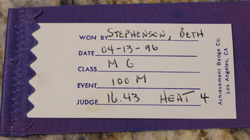 WON BY STEPHENSON, BETH
DATE 04-13-96
CLASS M G
EVENT 100 M
JUDGE 16.43 HEAT 4
Achievement Badge Co.
Los Angeles, CA